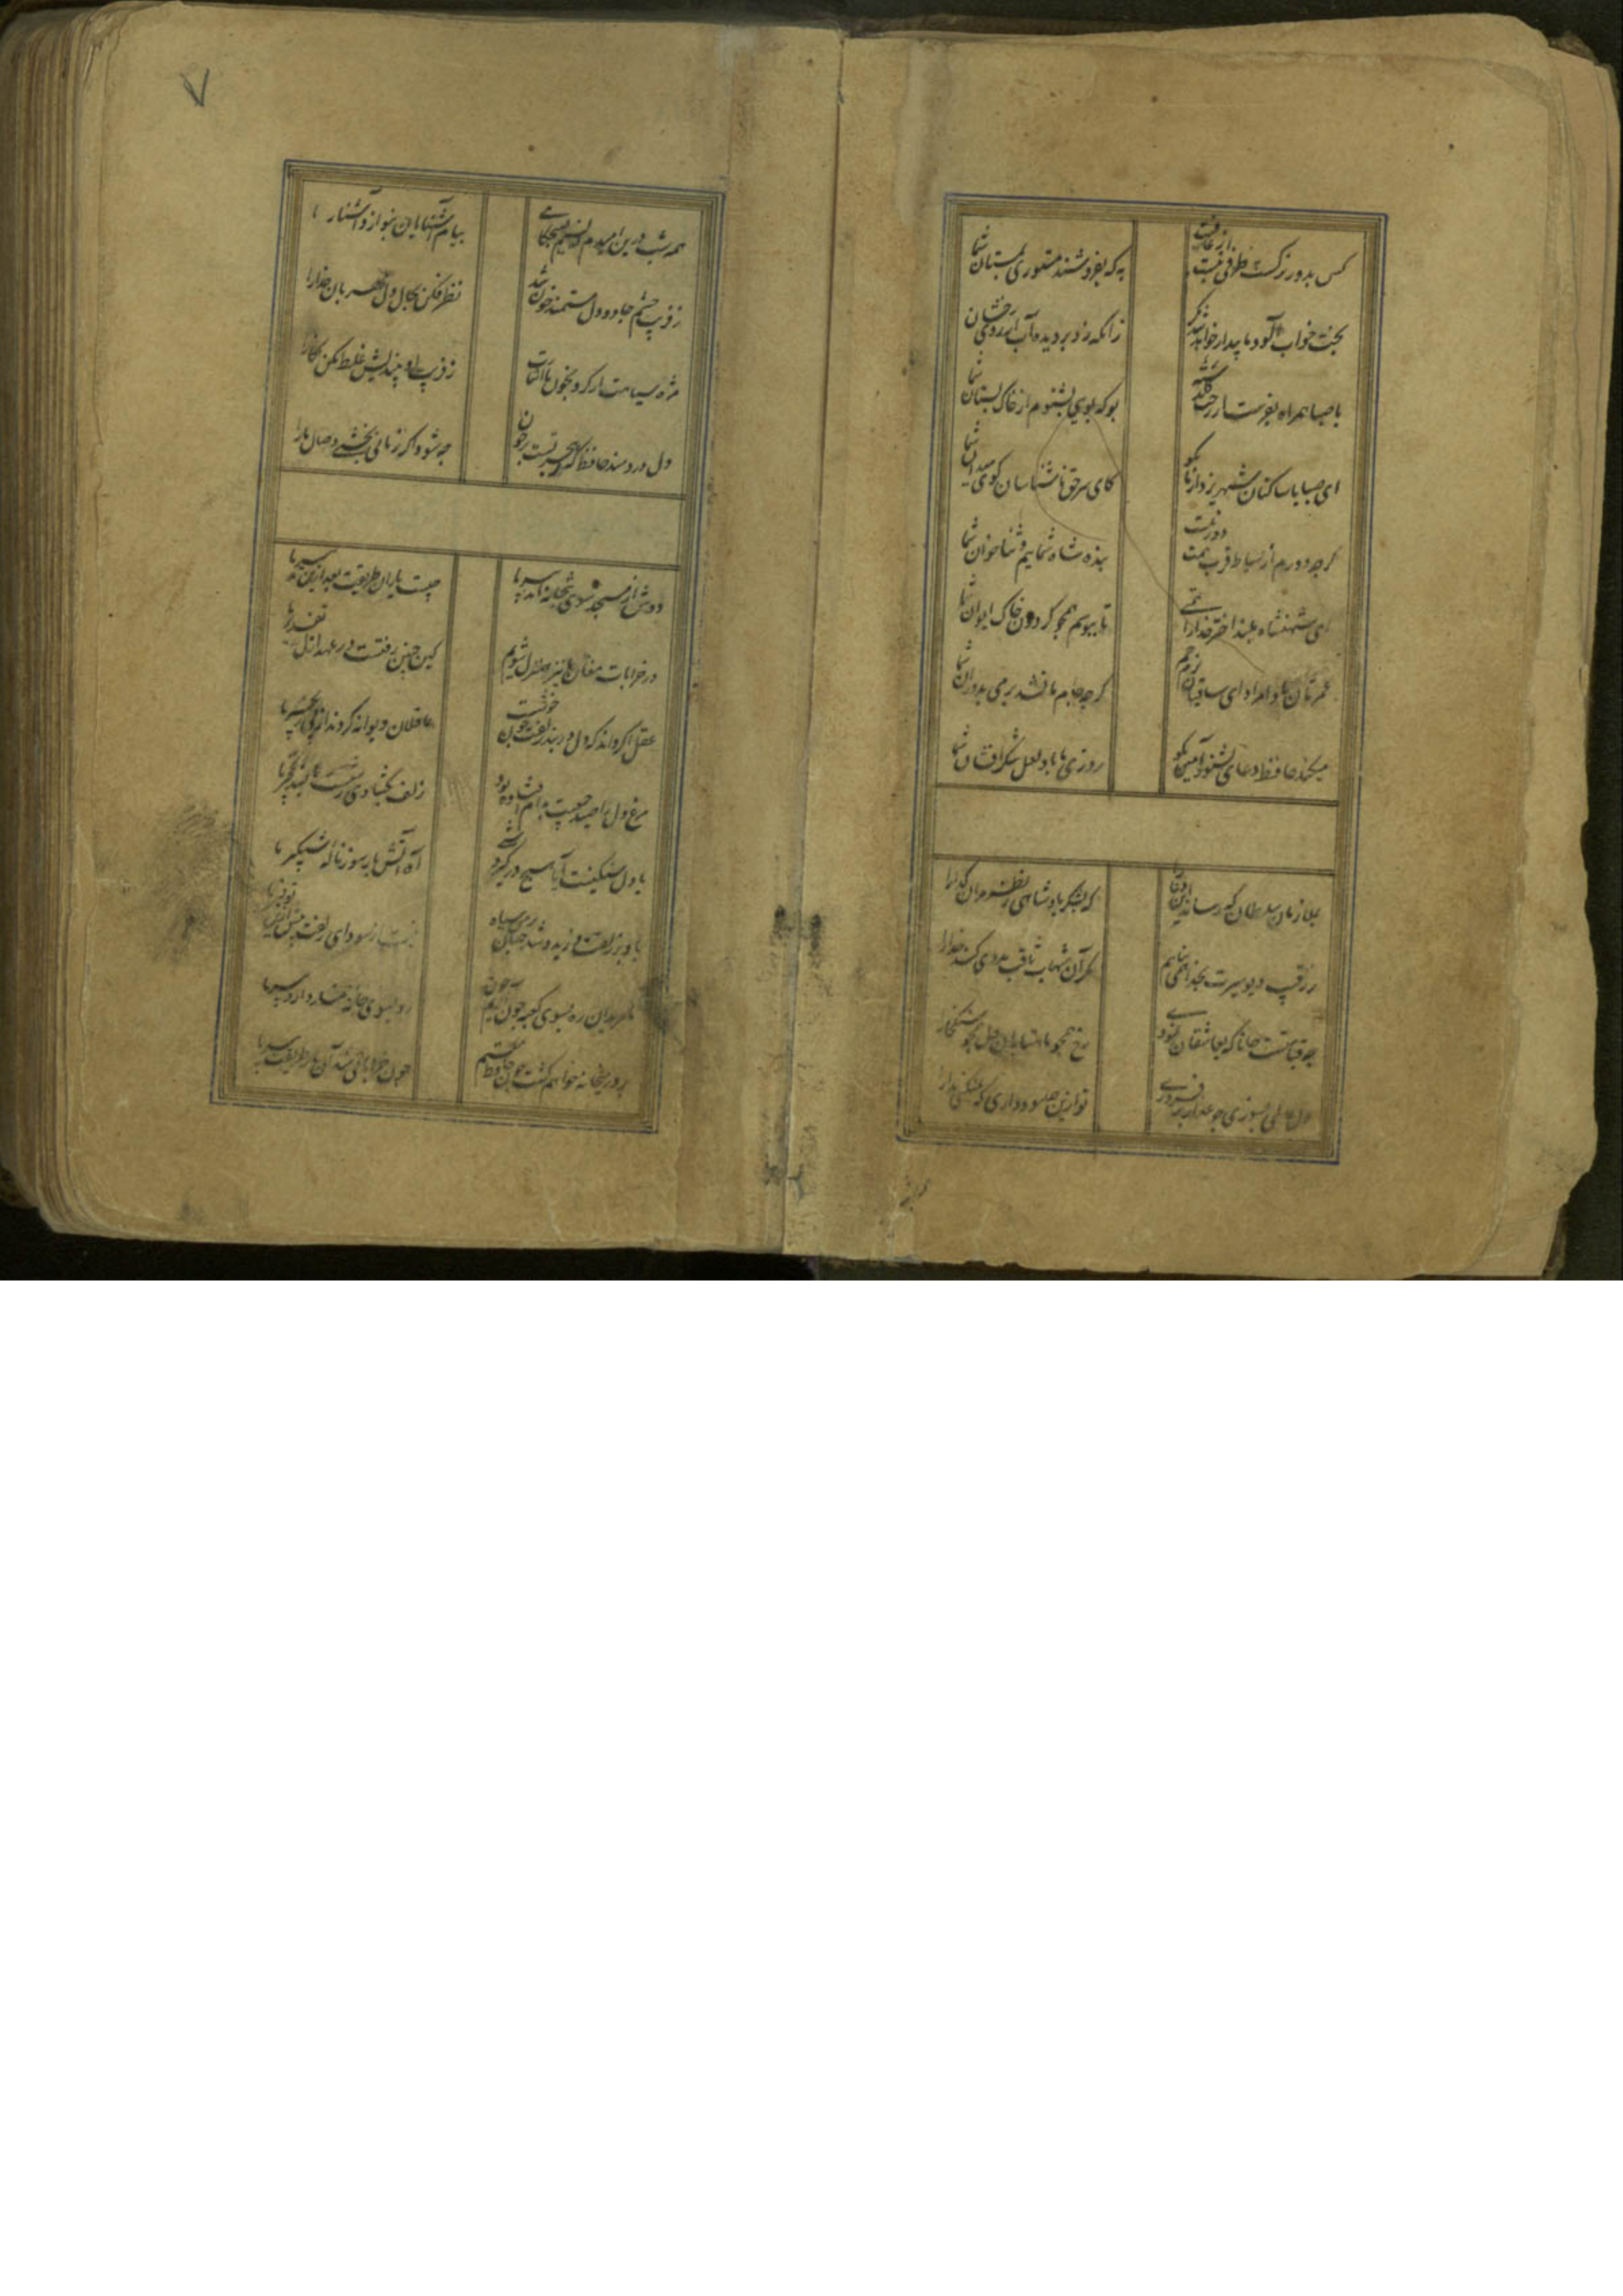 کس بدور نرگست طرفی نبست از عافیت
به که بفروشند مستوری بمستان شما
بخت خواب آلود ما بیدار خواهد شد مگر
زانکه زد بر دیده آب روی رخشان شما
با صبا همراه بفرست از رخت گلدسته
بو که بوی بشنوم از خاک بستان شما
ای صبا با ساکنان شهر یزد از ما بگو
کای سر حق ناشناسان کوی میدان شما
گرچه دورم از بساط قرب همت دور نیست
بنده شاه شماییم و ثناخوان شما
ای شهنشاه بلند اختر خدا را همتی
تا ببوسم همچو گردون خاک ایوان شما
عمرتان باد مراد ای ساقیان بزم جم
گرچه جام ما نشد پر می بدوران شما
میکند حافظ دعای بشنو و آمین بگو
روزی ما باد لعل شکرافشان شما
بملازمان سلطان که رساند این دعا را
که بشکر پادشاهی ز نظر مران گدا را
ز رقیب دیوسیرت بخدا همی پناهم
مگر آن شهاب ثاقب مددی کند خدا را
چه قیامتست جانا که بعاشقان نمودی
رخ همچو ماه تابان دل همچو سنگ خارا
دل عالمی بسوزی چو عذار برفروزی
تو ازین چه سود داری که نمیکنی مدارا
۷
همه شب درین امیدم که نسیم صبحگاهی
بپیام آشنایان بنوازد آشنا را
ز فریب چشم جادو دل مستمند خون شد
نظر فکن بحال دل مهربان خدا را
مژه سیاهت ار کرد بخون ما اشارت
ز فریب او بیندیش غلط مکن نگارا
دل دردمند حافظ که ز هجر تست پر خون
چه شود اگر زمانی بخشی وصال ما را
دوش از مسجد سوی میخانه آمد پیر ما
چیست یاران طریقت بعد ازین تدبیر ما
در خرابات مغان ما نیز هم منزل شویم
کین چنین رفتست در عهد ازل تقدیر ما
عقل اگر داند که دل در بند زلفت چون خوشست
عاقلان دیوانه گردند از پی زنجیر ما
مرغ دل را صید جمعیت بدام افتاده بود
زلف بگشادی
با دل سنگینت آیا هیچ درگیرد شبی
آه آتش بار و سوز ناله شبگیر ما
باد بر زلف تو وزید و شد جهان بر من سیاه
نیست از سودای زلفت بیش ازین توفیر ما
ما مریدان ره بسوی کعبه چون آریم چون
رو بسوی خانه خمار دارد پیر ما
بر در میخانه خواهم گشت چون حافظ مقیم
چون خراباتی شد آن یار طریقت پیر ما